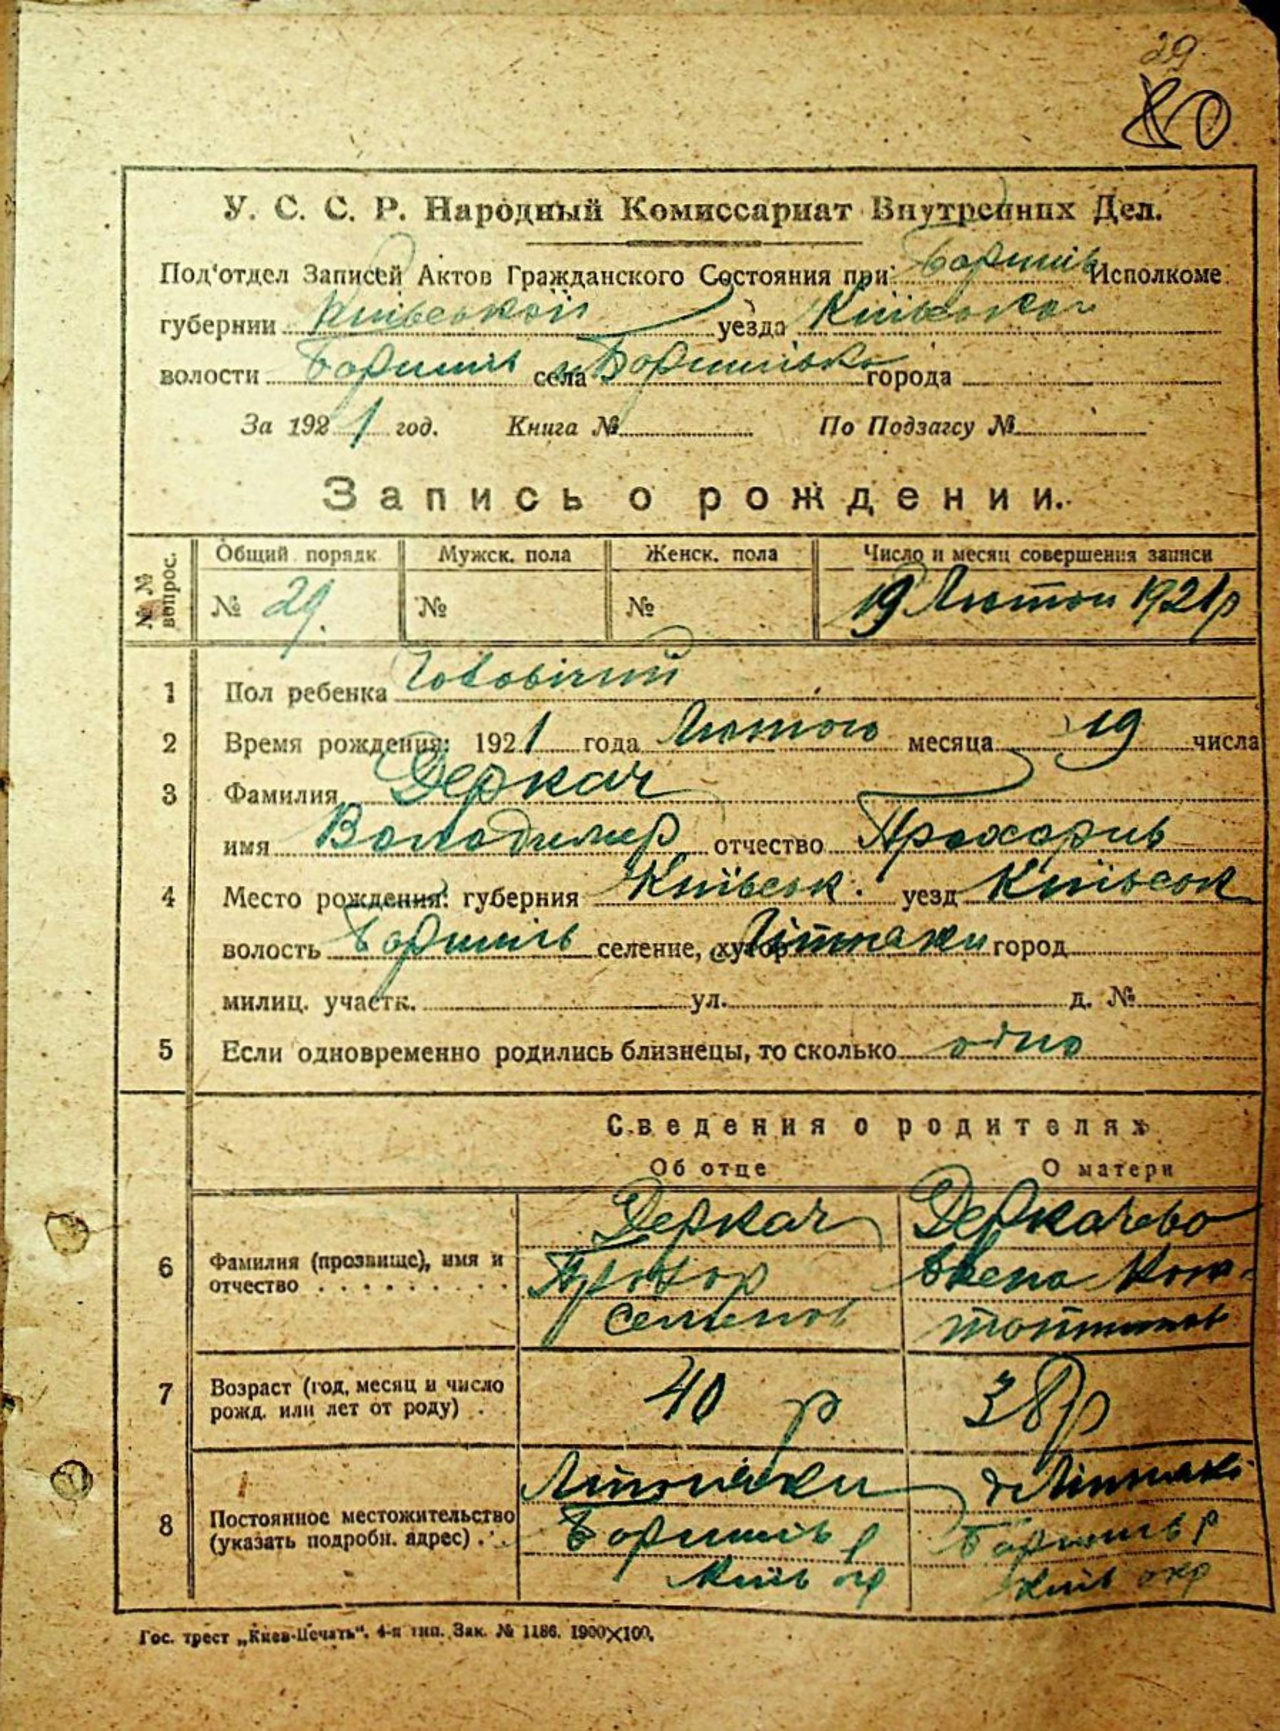 29.
80
У. С. С. Р. Народный Комиссариат Внутренних Дел.
Под'отдел Записей Актов Гражданского Состояния при Бориспіль Исполкоме
губернии Київської уезда Київського
волости Бориспіль села м Бориспілько города
За 1921 год. Книга № По Подзагсу №
Запись о рождении.
№ № вопрос. Общий порядк. Мужск. пола Женск. пола Число и месяц совершения записи
№ 29. № № 19 Лютого 1921 р
1 Пол ребенка Чоловічий
2 Время рождения: 1921 года Лютого месяца 19 числа
3 Фамилия Деркач
имя Володимер отчество Прохорив
4 Место рождения: губерния Київськ. уезд Київськ
волость Бориспіль селение, хутор город
милиц. участк. ул. д. №
5 Если одновременно родились близнецы, то сколько одно
Сведения о родителях
Об отце О матери
6 Фамилия (прозвище), имя и отчество Деркач Деркачево
Прохор
Семенов
7 Возраст (год, месяц и число рожд. или лет от роду) 40 р 38 р
8 Постоянное местожительство (указать подробн. адрес)
Бориспіль р Бориспіль р
Київ окр Київ окр
Гос. трест „Киев-Печать“. 4-я тип. Зак. № 1186. 1900×100.